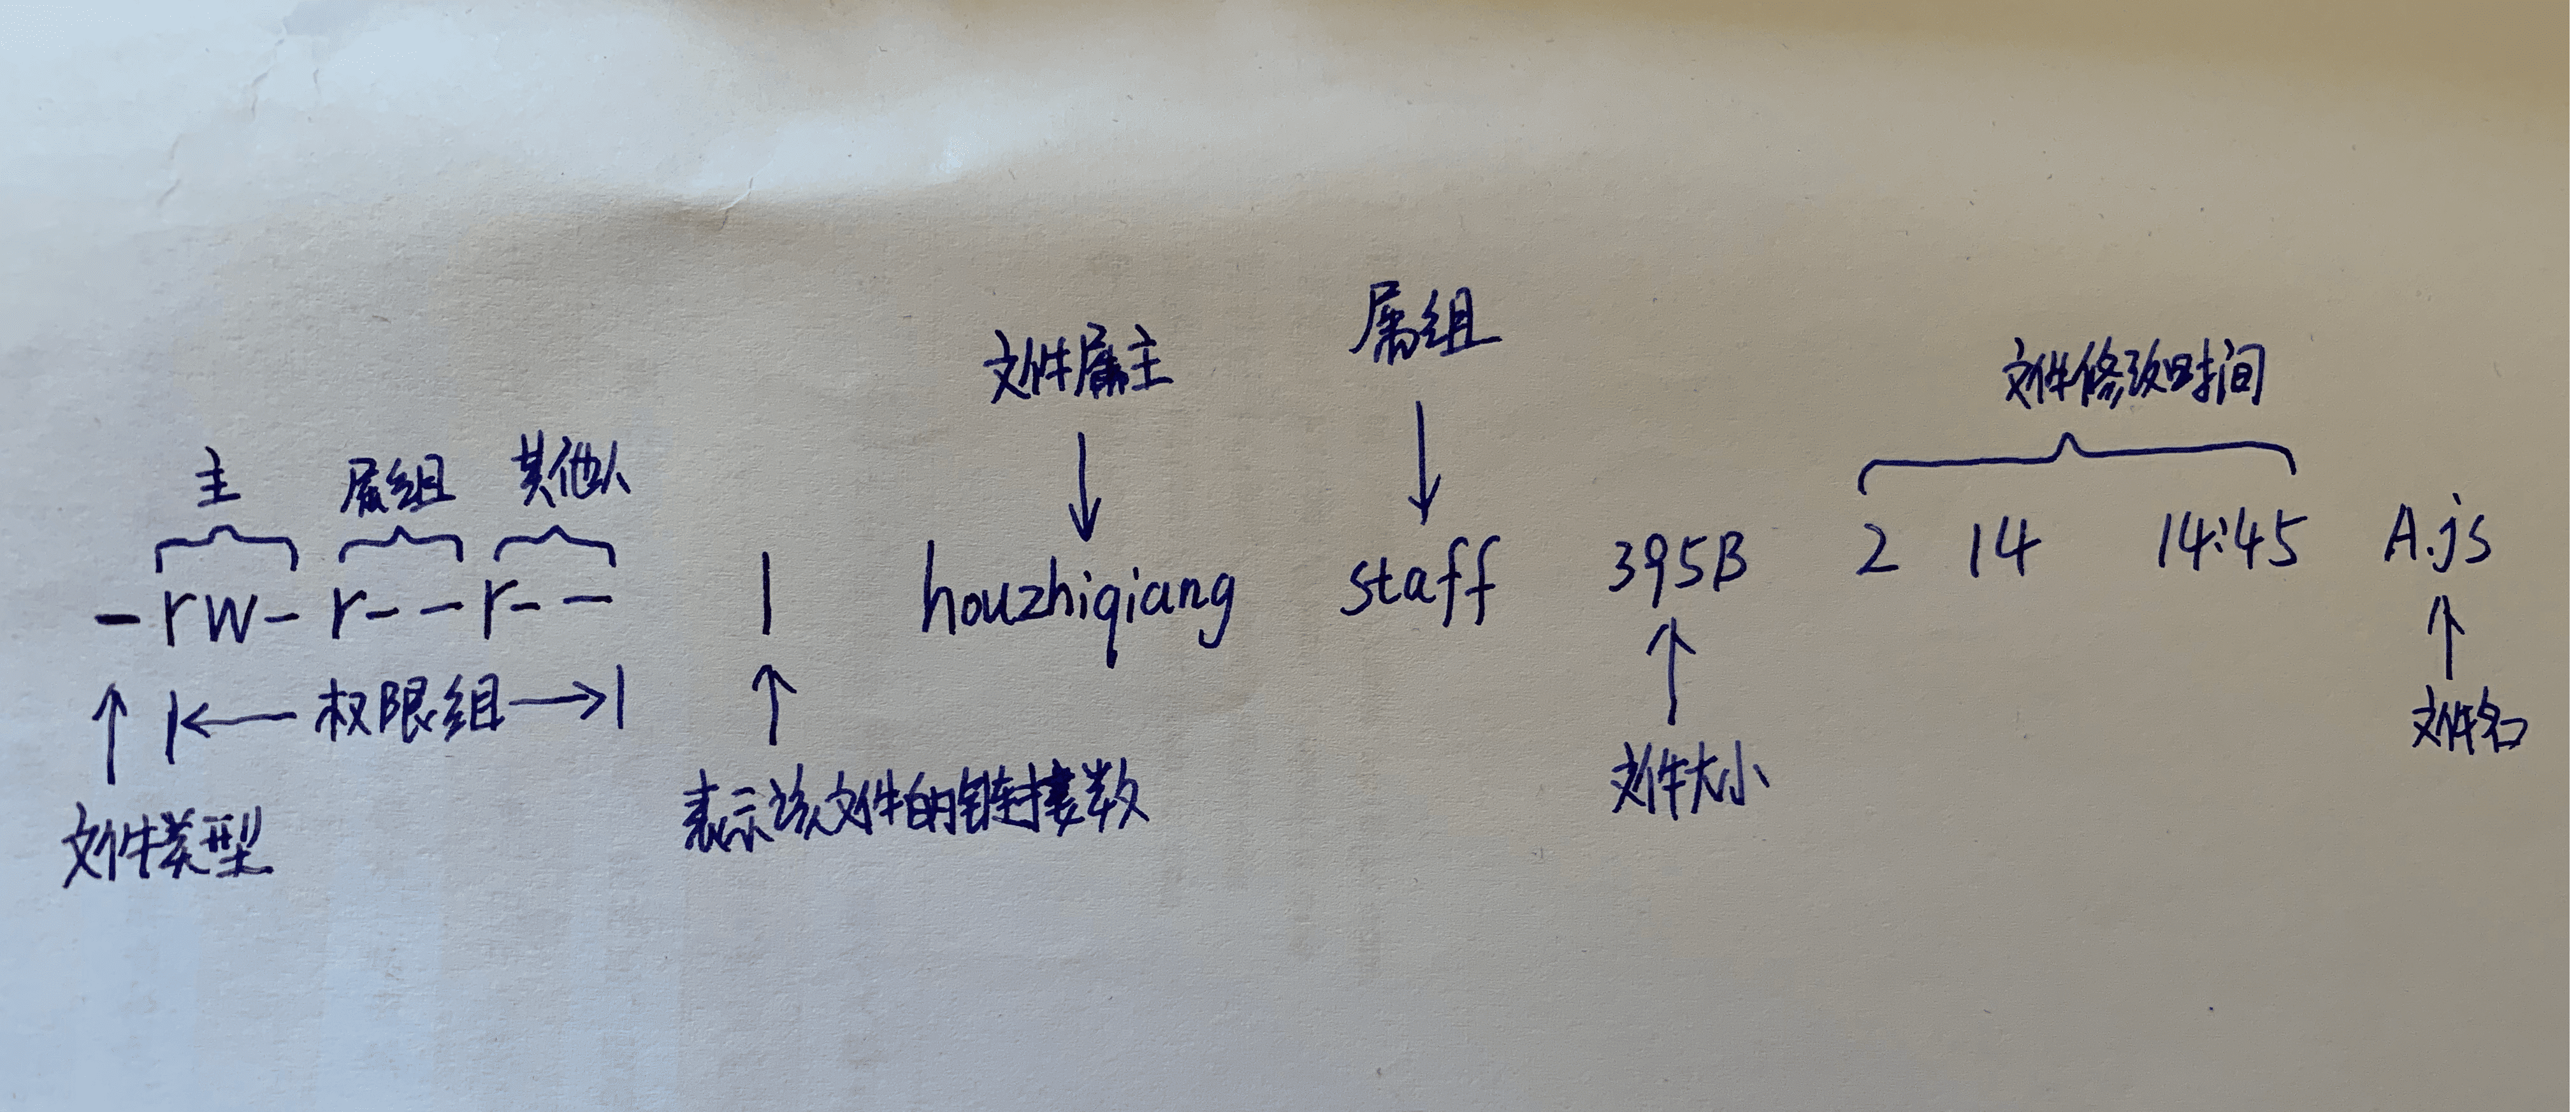 属组
文件属主
文件修改时间
主 属组 其他人
-rw-r--r-- 1 houzhiqiang staff 395B 2 14 14:45 A.js
权限组
文件名
表示该文件的链接数
文件大小
文件类型